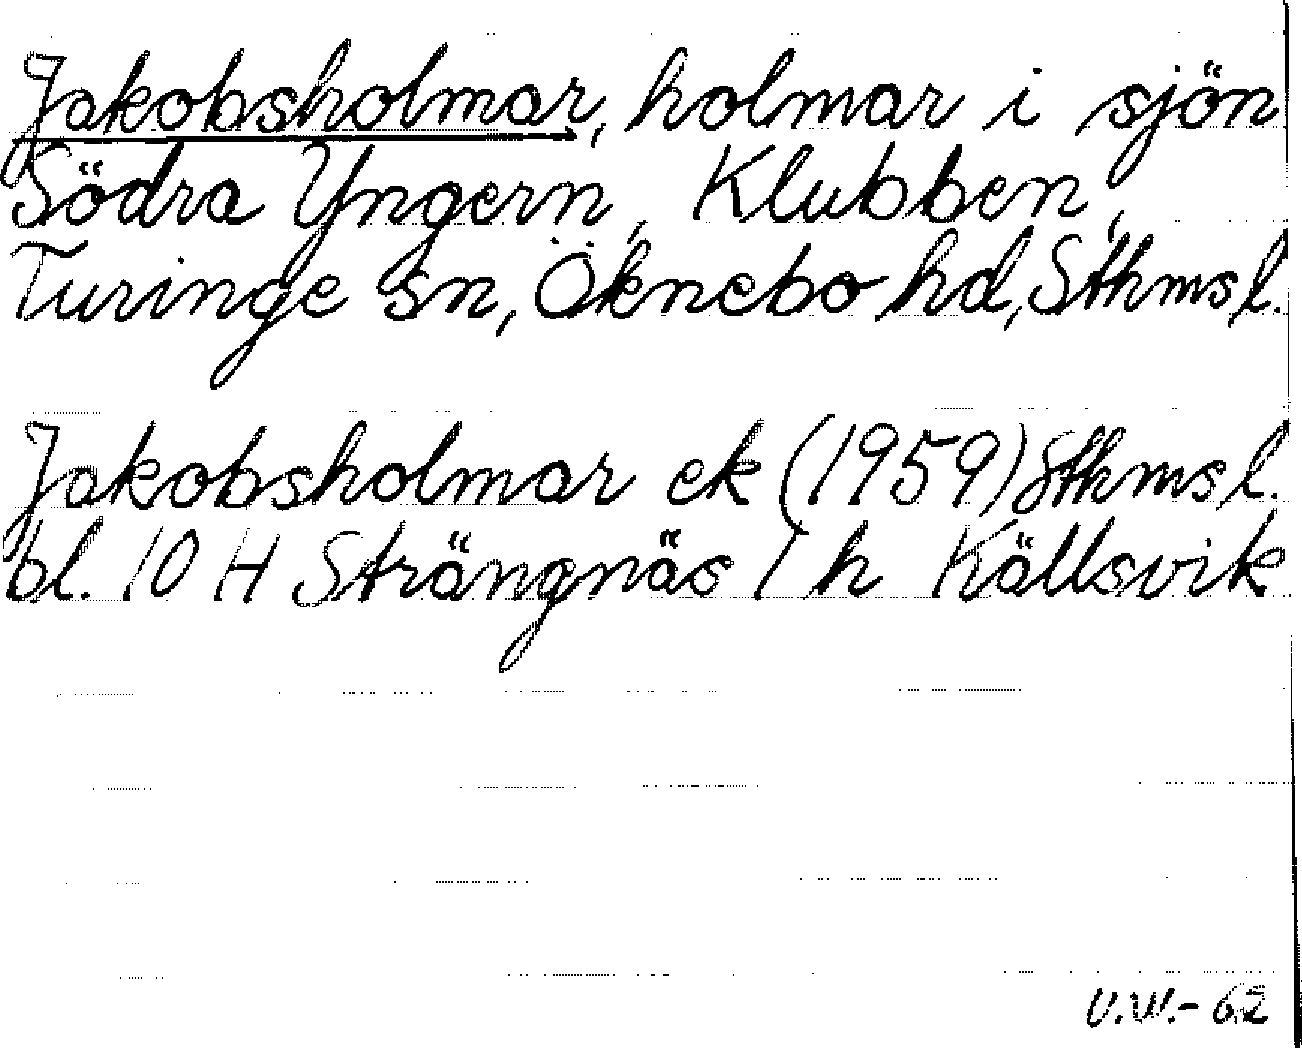 Jakobsholmar, holmar i sjön
Södra Yngern, Klubben,
Turinge sn, Öknebo hd, Sthms l.
Jakobsholmar ek (1959) Sthms l.
bl. 10 H Strängnäs 1 h Källsvik
V.W.- 62